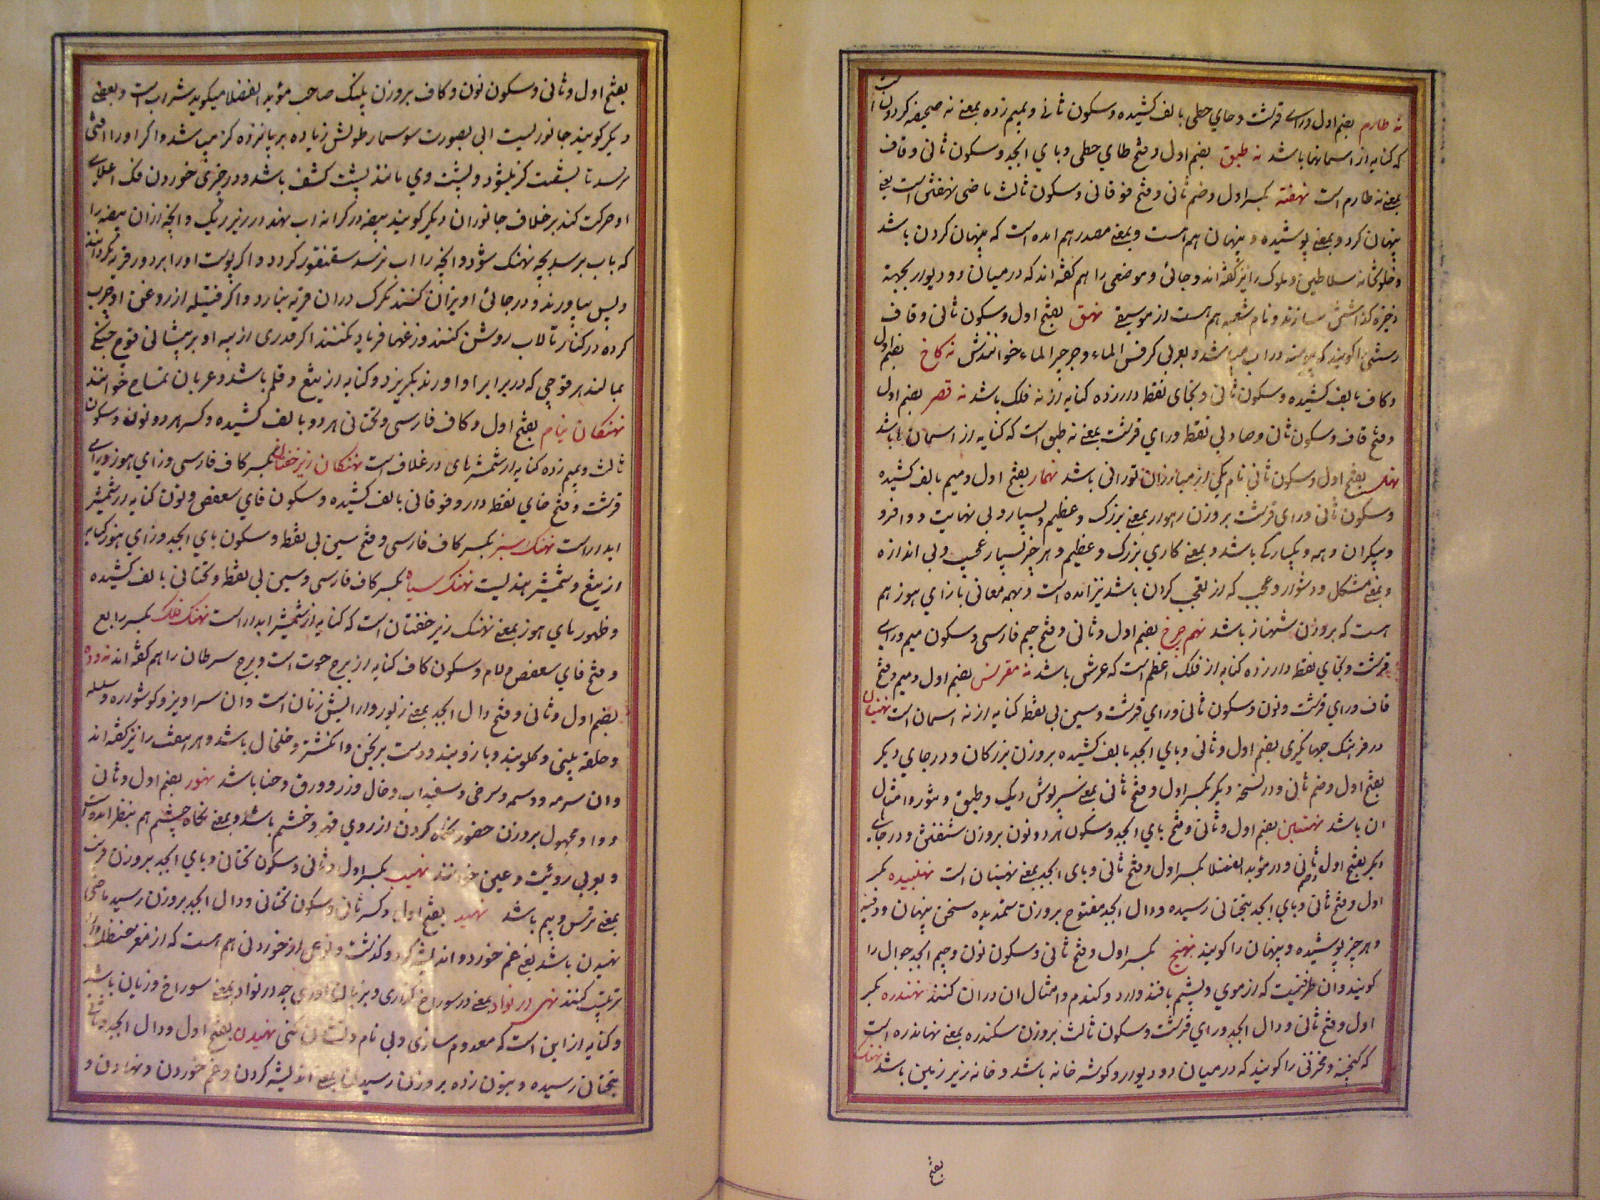 نه طارم بضم اول و راى قرشت و حاي حطي بالف كشيده و سكون ثاني و بميم زده بمعنى نه
كه كنايه از آسمانها باشد نه طبق بضم اول و فتح طاي حطي و باي ابجد و سكون ثاني و قاف
بمعنى نه طارم است نهفته بكسر اول و ضم ثاني و فتح فوقاني و سكون ثالث ماضى نهفتن است يعنى
پنهان كرد و بمعنى پوشيده و پنهان هم هست و بمعنى مصدر هم آمده است كه پنهان كردن باشد
و خلوتخانه سلاطين و ملوك را نيز گفته اند و جائى و موضعى را هم گفته اند كه درميان دو ديوار بجهة
ذخيره گذاشتن سازند و نام شعبه هم هست از موسيقى نهق بفتح اول و سكون ثاني و قاف
رستنى را گويند كه پيوسته در آب ميباشد و بعربى كرفس الماء و جرجير الماء خوانندش نه كاخ بضم اول
و كاف بالف كشيده و سكون ثاني و بخاى نقطه دار زده كنايه از نه فلك باشد نه قصر بضم اول
و فتح قاف و سكون ثاني و صاد بى نقطه و راي قرشت بمعنى نه طبق است كه كنايه از آسمان باشد
نهل بفتح اول و سكون ثاني نام يكى از مبارزان توراني باشد نهمار بفتح اول و ميم بالف كشيده
و سكون ثاني و راي قرشت بر وزن رهوار بمعنى بزرك و عظيم و بسيار و بى نهايت و وافر و
و بيكران و همه و يكباركي باشد و بمعنى كاري بزرك و عظيم و هر چيز بسيار عجيب و بى اندازه
و بمعنى مشكل و دشوار و عجب كه از تعجب كردن باشد نيز آمده است و بهمه معاني با زاي هوز هم
هست كه بر وزن شهناز باشد نهم چرخ بضم اول و ثاني و فتح جيم فارسى و سكون ميم و راى
قرشت و بخاي نقطه دار زده كنايه از فلك اعظم است كه عرش باشد نه مقرنس بضم اول و ميم و فتح
قاف و راي قرشت و نون و سكون ثاني و راي قرشت و سين بى نقطه كنايه از نه آسمان است نهنبان
در فرهنك جهانگيرى بضم اول و ثاني و باي ابجد بالف كشيده بر وزن بزركان و در جاي ديكر
بفتح اول و ضم ثاني و در نسخه ديكر بكسر اول و فتح ثاني بمعنى سرپوش ديك و طبق و تنور و امثال
آن باشد نهنبن بضم اول و ثاني و فتح باي ابجد و سكون هر دو نون بر وزن شنفتن و در جاى
ديكر بفتح اول و ثاني و در مؤيد الفضلا بكسر اول و فتح ثاني و باى ابجد بمعنى نهنبان است نهنبيده بكسر
اول و فتح ثاني و باي ابجد بتحتاني رسيده و دال ابجد مفتوح بر وزن سنديده سخن پنهان و دفينه
و هر چيز پوشيده و پنهان را گويند نهنج بكسر اول و فتح ثاني و سكون نون و جيم ابجد جوال را
گويند و آن ظرفيست كه از موي و پشم بافند و آرد و كندم و امثال آن در آن كنند نهندره بكسر
اول و فتح ثاني و دال ابجد و راي قرشت و سكون ثالث بر وزن سكندره بمعنى نهاندره است
كه گنجينه و مخزنى را گويند كه درميان دو ديوار و كوشه خانه باشد و خانه زير زمين باشد نهنك
بفتح
بفتح اول و ثاني و سكون نون و كاف بر وزن پلنك صاحب مؤيد الفضلا ميكويد شراب است و بعضى
ديكر كويند جانوريست آبى بصورت سوسمار طولش زياده بر پانزده كز ميباشد و اكر او را آفتى
نرسد تا بشصت كز بشود و پشت وي مانند پشت كشف باشد و در چيزى خوردن فك اعلاى
او حركت كند بر خلاف جانوران ديكر كويند بيضه در كرانه آب نهد در زير ريك و آنچه از آن بيضه را
كه باب برسد بچه نهنك شود و آنچه را آب نرسد سقنقور كردد و اكر پوست او را بر دور قريه كردانند
و پس بياورند و در جائى آويزان كنند تكرك در آن قريه نبارد و اكر فتيله از روغن او چرب
كرده در كنار تالاب روشن كنند وزغها فرياد نكنند اكر قدرى از پيه او بر پيشاني قوچ جنكى
بمالند هر قوچي كه در برابر او آورند بكريزد و كنايه از تيغ و قلم باشد و عربان تمساح خوانند
نهنكان نيام بفتح اول و كاف فارسى و تحتاني هر دو بالف كشيده و كسر هر دو نون و سكون
ثالث و بميم زده كنايه از شمشيرهاى در غلاف است نهنكان زير خفتان بكسر كاف فارسى و زاي هوز و راى
قرشت و فتح خاي نقطه دار و فوقاني بالف كشيده و سكون فاي سعفص و نون كنايه از شمشير
آبدار است نهنك سبز بكسر كاف فارسى و فتح سين بى نقطه و سكون باي ابجد و زاي هوز كنايه
از تيغ و شمشير هنديست نهنك سياه بكسر كاف فارسى و سين بى نقطه و تحتاني بالف كشيده
و ظهور هاي هوز بمعنى نهنك زير خفتان است كه كنايه از شمشير آبدار است نهنك فلك بكسر رابع
و فتح فاي سعفص و لام و سكون كاف كنايه از برج حوت است و برج سرطان را هم كفته اند نه و ده
بضم اول و ثاني و فتح دال ابجد بمعنى زيور و آرايش زنان است و آن سراويز و كوشواره و سلسله
و حلقه بينى و كلوبند و بازوبند و دست برنجن و انكشتر و خلخال باشد و هر هفت را نيز كفته اند
و آن سرمه و وسمه و سرخى و سفيداب و خال و زرورق و حنا باشد نهور بضم اول و ثاني
و واو مجهول بر وزن حضور نكاه كردن از روي قهر و خشم باشد و بمعنى نكاه چشم هم بنظر آمده است
و بعربى رؤيت و عين خوانند نهيب بكسر اول و ثاني و سكون تحتاني و باي ابجد بر وزن فريب
بمعنى ترس و بيم باشد نهيد بفتح اول و كسر ثاني و سكون تحتاني و دال ابجد بر وزن رسيد ماضى
نهيدن باشد يعنى غم خورد و انديشه كرد و كذشت و نوعى از خوردنى هم هست كه از مغز حنظل
ترتيب كنند نهى در نواد بمعنى در سوراخ كذارى و بزبان آوري چه در نواد بمعنى سوراخ و زبان باشد
و كنايه از اين است كه معدوم سازى و بى نام و نشان كنى نهيدن بفتح اول و دال ابجد و ثاني
بتحتاني رسيده و بنون زده بر وزن رسيدن بمعنى انديشه كردن و غم خوردن و نهادن و